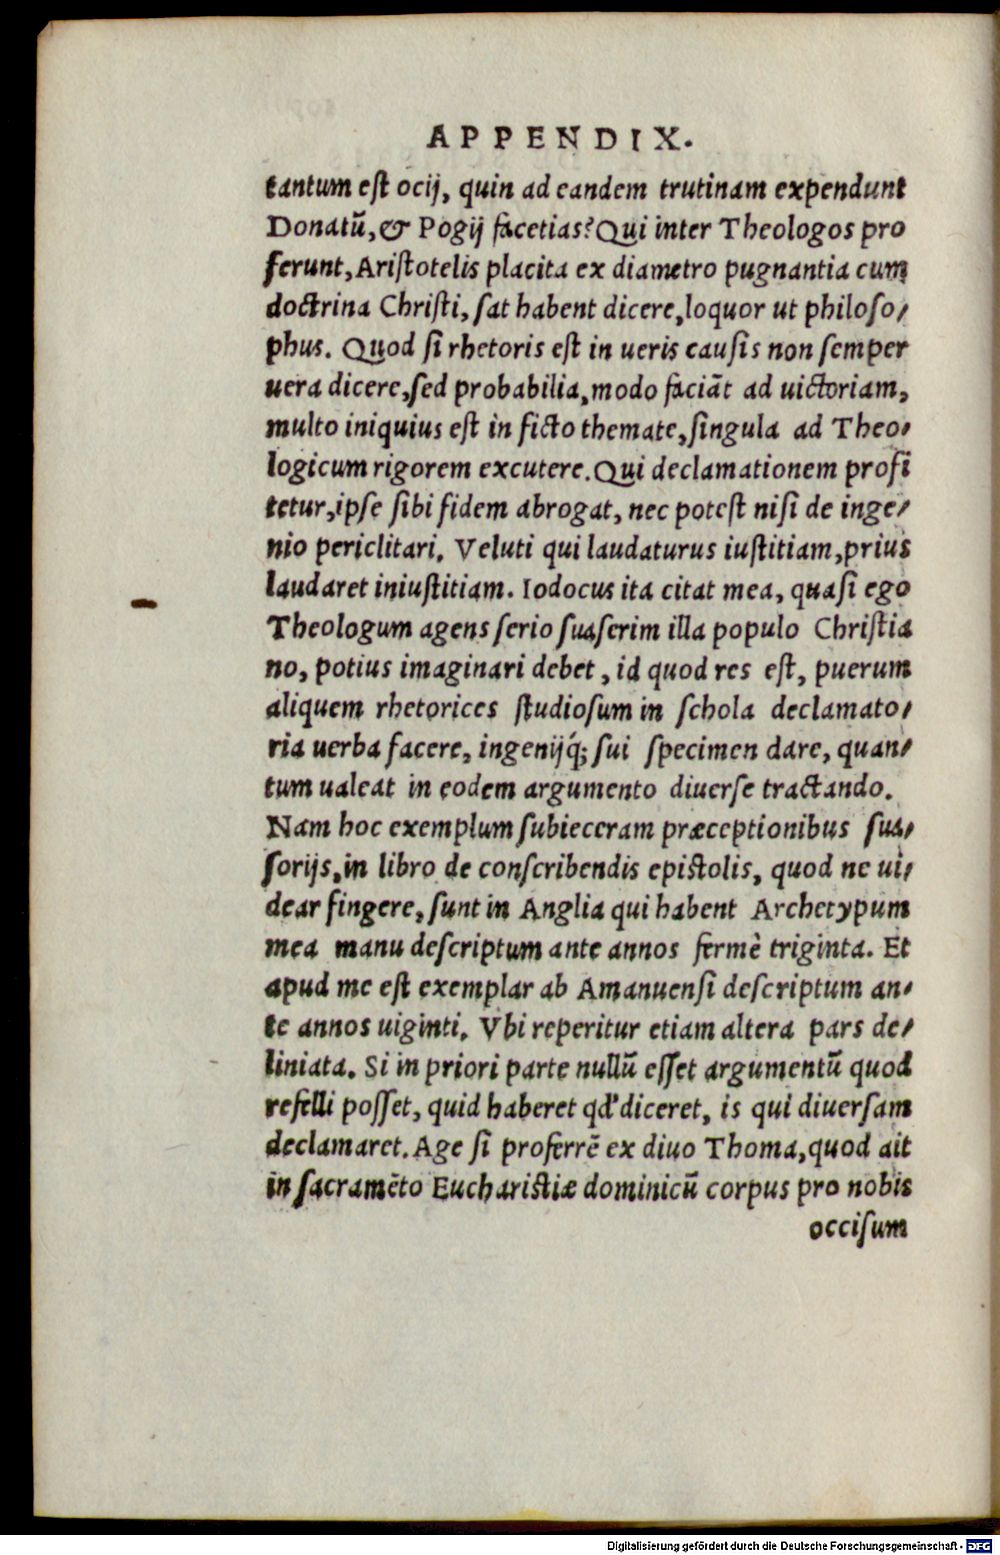 APPENDIX.
tantum est ocij, quin ad eandem trutinam expendunt
Donatũ, & Pogij facetias? Qui inter Theologos pro
ferunt, Aristotelis placita ex diametro pugnantia cum
doctrina Christi, sat habent dicere, loquor ut philoso⸗
phus. Quod si rhetoris est in ueris causis non semper
uera dicere, sed probabilia, modo faciãt ad uictoriam,
multo iniquius est in ficto themate, singula ad Theo⸗
logicum rigorem excutere. Qui declamationem profi
tetur, ipse sibi fidem abrogat, nec potest nisi de inge⸗
nio periclitari. Veluti qui laudaturus iustitiam, prius
laudaret iniustitiam. Iodocus ita citat mea, quasi ego
Theologum agens serio suaserim illa populo Christia
no, potius imaginari debet, id quod res est, puerum
aliquem rhetorices studiosum in schola declamato⸗
ria uerba facere, ingenijq́; sui specimen dare, quan⸗
tum ualeat in eodem argumento diuerse tractando.
Nam hoc exemplum subieceram præceptionibus sua⸗
sorijs, in libro de conscribendis epistolis, quod ne ui⸗
dear fingere, sunt in Anglia qui habent Archetypum
mea manu descriptum ante annos fermè triginta. Et
apud me est exemplar ab Amanuensi descriptum an⸗
te annos uiginti. Vbi reperitur etiam altera pars de⸗
liniata. Si in priori parte nullũ esset argumentũ quod
refelli posset, quid haberet qd' diceret, is qui diuersam
declamaret. Age si proferrẽ ex diuo Thoma, quod ait
in sacramẽto Eucharistiæ dominicũ corpus pro nobis
occisum
Digitalisierung gefördert durch die Deutsche Forschungsgemeinschaft - DFG